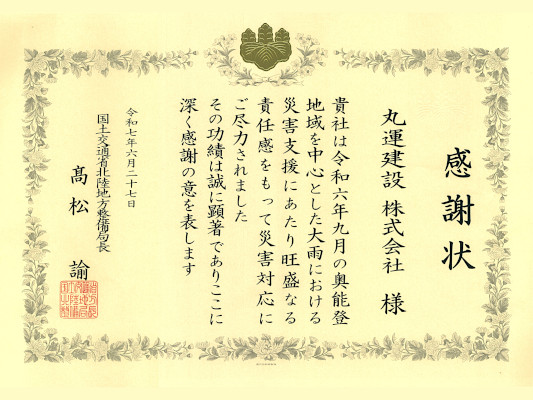 感謝状
丸運建設 株式会社 様
貴社は令和六年九月の奥能登
地域を中心とした大雨における
災害支援にあたり旺盛なる
責任感をもって災害対応に
ご尽力されました
その功績は誠に顕著でありここに
深く感謝の意を表します
令和七年六月二十七日
国土交通省北陸地方整備局長
髙松 諭